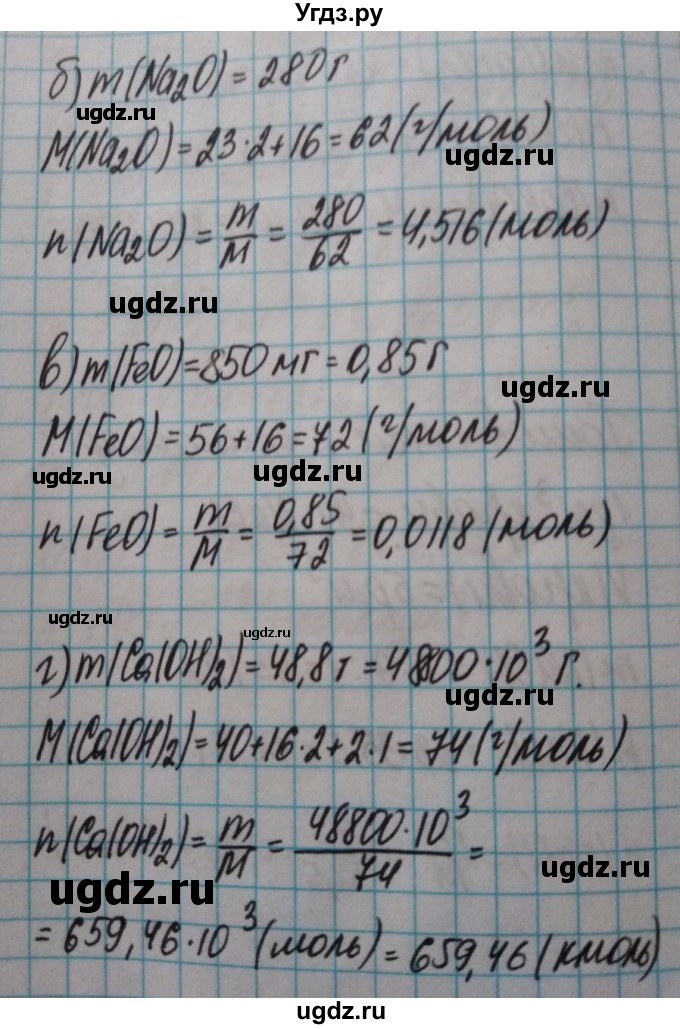 Угдз.ру
б) m(Na₂O) = 280 г
ugdz.ru
M(Na₂O) = 23·2+16 = 62 (г/моль)
ugdz.ru
n(Na₂O) = m/M = 280/62 = 4,516 (моль)
ugdz.ru
в) m(FeO) = 850 мг = 0,85 г
ugdz.ru
M(FeO) = 56+16 = 72 (г/моль)
ugdz.ru ugdz.ru
n(FeO) = m/M = 0,85/72 = 0,0118 (моль)
ugdz.ru ugdz.ru
г) m(Ca(OH)₂) = 48,8 т = 48800·10³ г.
ugdz.ru
M(Ca(OH)₂) = 40+16·2+2·1 = 74 (г/моль)
n(Ca(OH)₂) = m/M = 48800·10³/74 =
ugdz.ru ugdz.ru
= 659,46·10³ (моль) = 659,46 (кмоль)
ugdz.ru